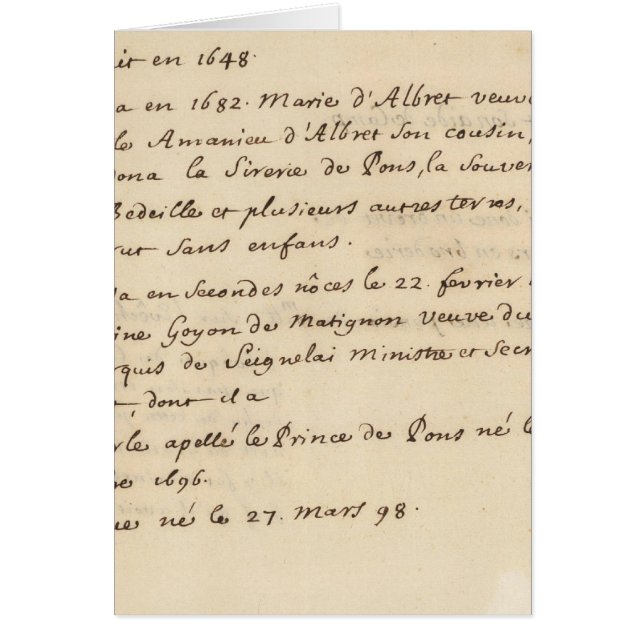 it en 1648.
a en 1682. Marie d'Albret veuv
le Amanieu d'Albret son cousin,
ona la Sirerie de Pons, la souver
Bedeille et plusieurs autres terres,
rut sans enfans.
a en secondes nôces le 22. fevrier
ine Goyon de Matignon veuve du
quis de Seignelai Ministre et Secr
t, dont il a
rle apellé le Prince de Pons né l
re 1696.
ue né le 27. Mars 98.